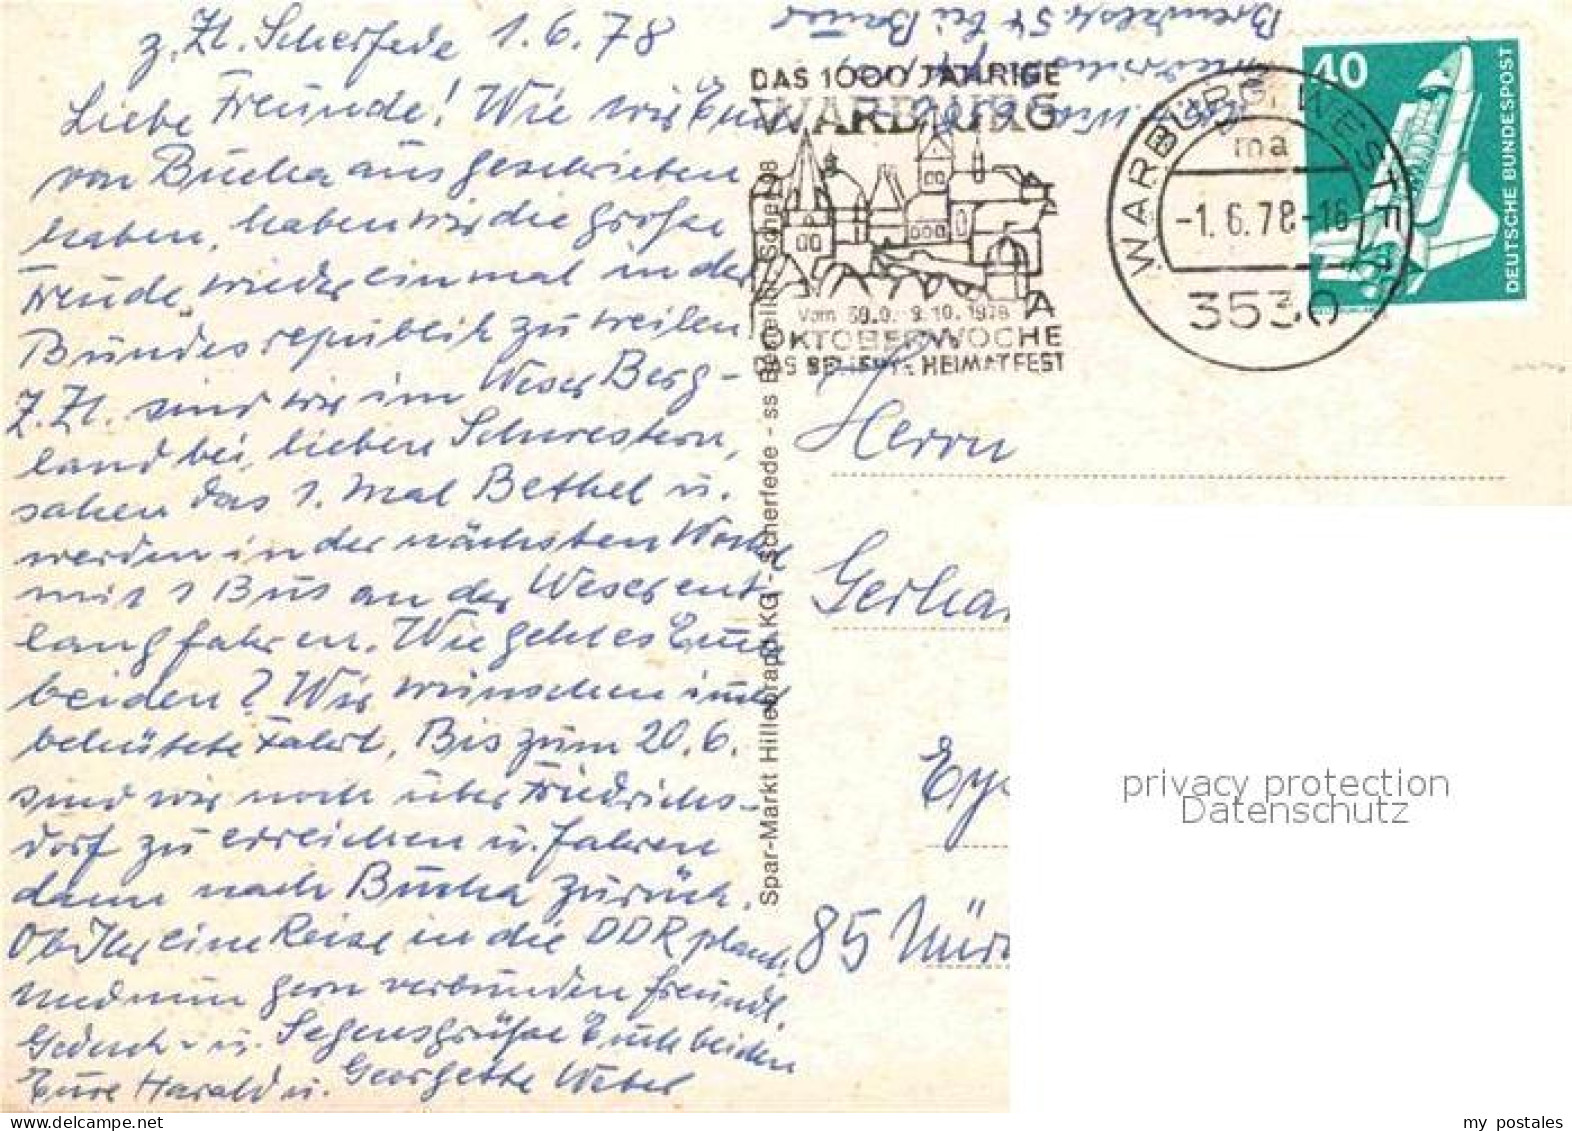 z. Zt. Scherfede 1.6.78
Liebe Freunde! Wie wir Euch
von Bucha aus geschrieben
haben, haben wir die große
Freude, wieder einmal in der
Bundesrepublik zu weilen.
Z.Zt. sind wir im Weser Berg-
land bei lieben Schwestern,
sahen das 1. Mal Bethel u.
werden in der nächsten Woche
mit 1 Bus an der Weser ent-
lang fahren. Wie geht es Euch
beiden? Wir wünschen
behütete Fahrt. Bis zum 20.6.
sind wir noch über Friedrichs-
dorf zu erreichen u. fahren
dann nach Bucha zurück.
Ob Ihr eine Reise in die DDR plant.
Und nun gern verbunden freundl.
Gedenk- u. Segensgrüße Euch beiden
Eure Harald u. Georgette Weber
DAS 1000 JÄHRIGE
WARBURG
OKTOBERWOCHE
DAS BELIEBTE HEIMATFEST
WARBURG, WESTF
ma
-1.6.78-16
3530
40
DEUTSCHE BUNDESPOST
Spar-Markt Hillebrand KG - Scherfede - ss
Herrn
Gerha
Ey
85 Nür
privacy protection
Datenschutz
my postales